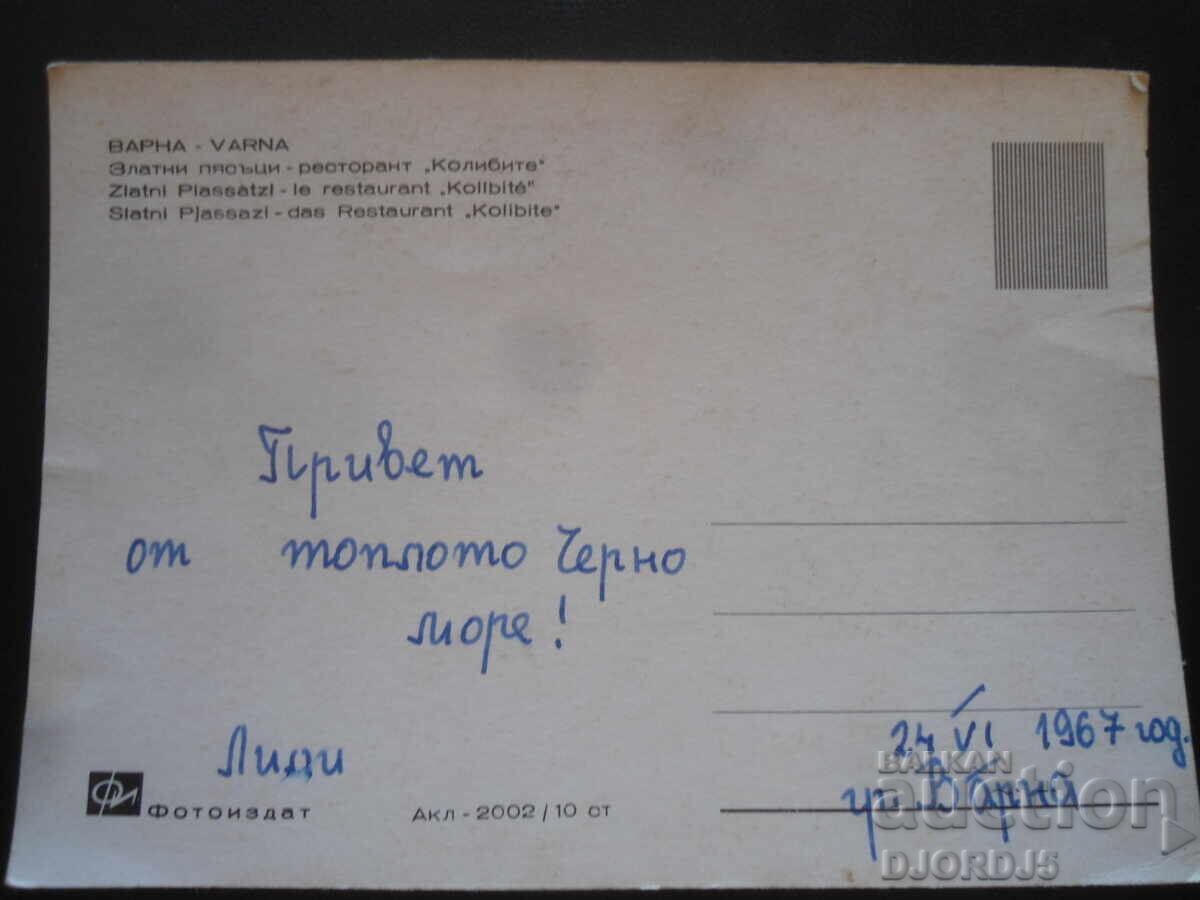 ВАРНА - VARNA
Златни пясъци - ресторант „Колибите"
Zlatni Piassatzi - le restaurant „Kolibité"
Slatni Pjassazi - das Restaurant „Kolibite"
Привет
от топлото Черно
море!
Лиди
24 VI 1967 год.
гр. Варна
ФИ Фотоиздат
Акл - 2002/10 ст
BALKAN
auction
DJORDJ5